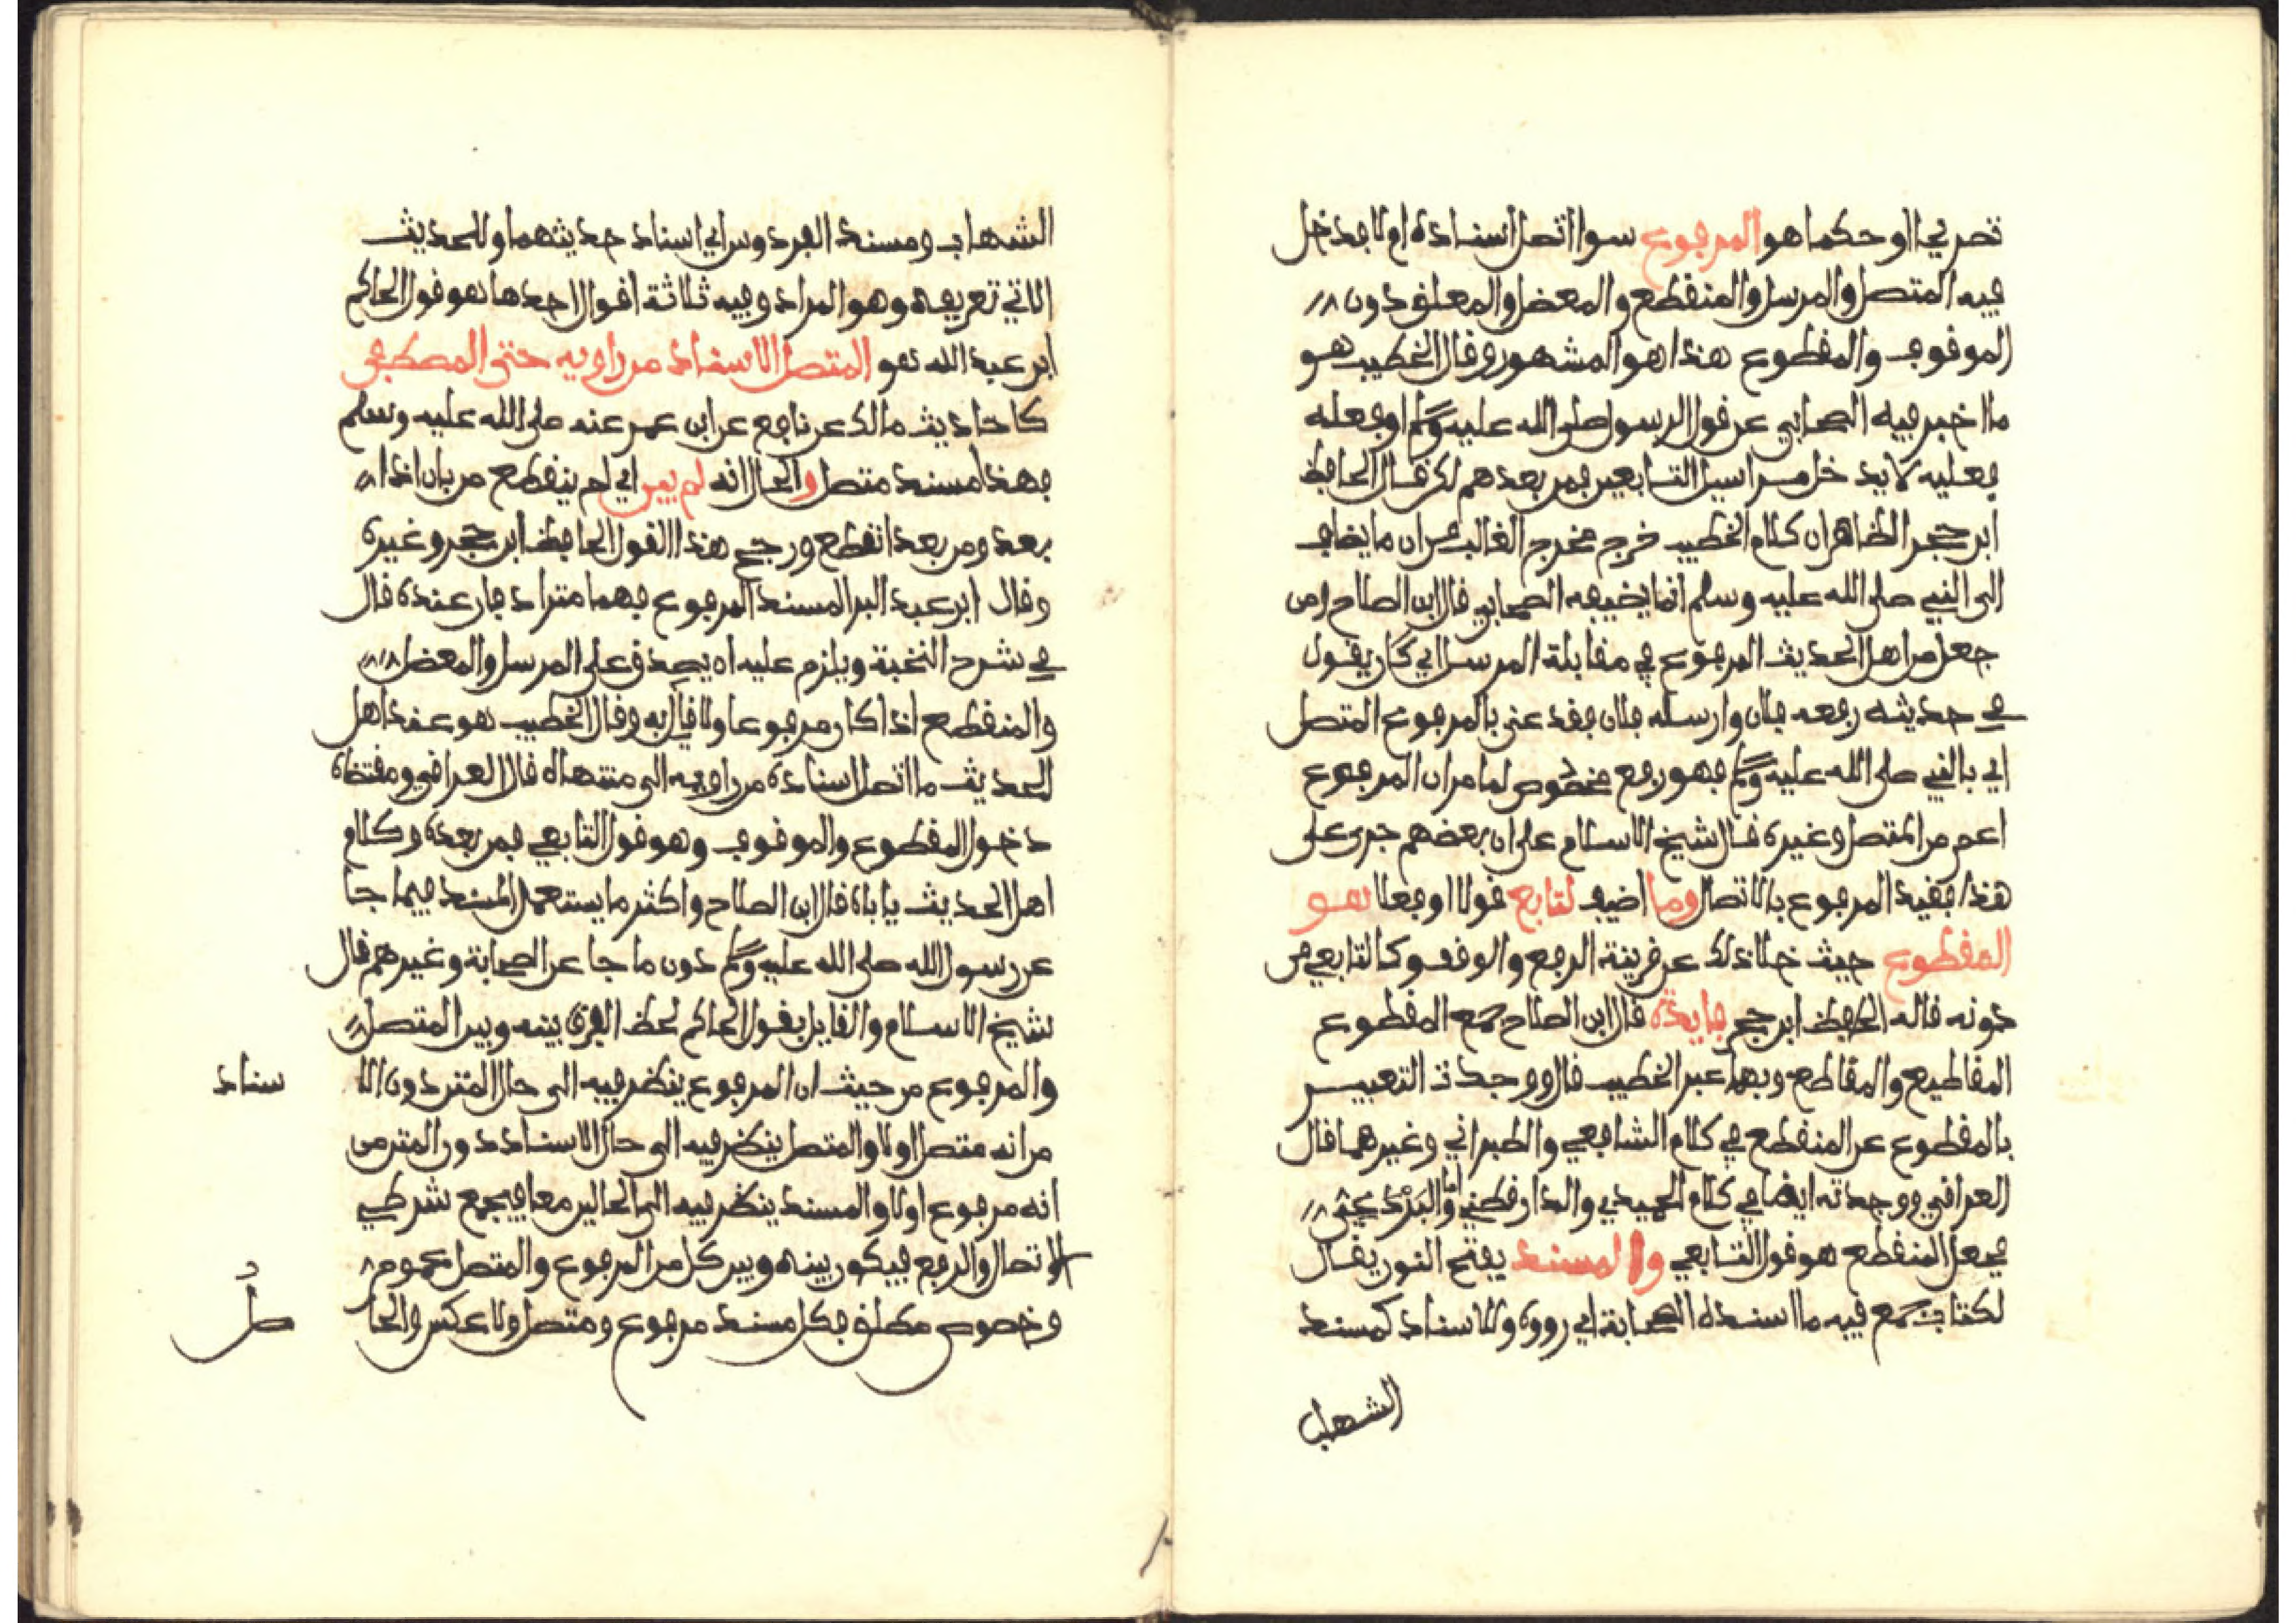 تصريحا او حكما هو المرفوع سوا اتصل اسناده ام لا فدخل
فيه المتصل والمرسل والمنقطع والمعضل والمعلق دون
الموقوف والمقطوع هذا هو المشهور وقال الخطيب هو
ما اخبر فيه الصحابي عن قول الرسول صلى الله عليه وسلم او فعله
فعليه لا يدخل مراسيل التابعين فمن بعدهم لكن قال الحافظ
ابن حجر الظاهر ان كلام الخطيب خرج مخرج الغالب من ان ما يضاف
الى النبي صلى الله عليه وسلم انما يضيفه الصحابي قال ابن الصلاح ومن
جعل من اهل الحديث المرفوع في مقابلة المرسل اي كان يقول
في حديثه رفعه فلان وارسله فلان فقد عنى بالمرفوع المتصل
اي بالنبي صلى الله عليه وسلم فهو رفع مخصوص لما مر ان المرفوع
اعم من المتصل وغيره قال شيخ الاسلام على ان بعضهم جرى على
هذا فقيد المرفوع بالاتصال وما اضيف لتابع قولا او فعلا هو
المقطوع حيث خلا ذلك عن قرينة الرفع والوقف وكالتابعي من
دونه قاله الحافظ ابن حجر فايدة قال ابن الصلاح جمع المقطوع
المقاطيع والمقاطع وبهما عبر الخطيب قال ووجدت التعبير
بالمقطوع عن المنقطع في كلام الشافعي والطبراني وغيرهما قال
العراقي ووجدته ايضا في كلام الحميدي والدارقطني واما البردعي
فجعل المنقطع هو قول التابعي والمسند بفتح النون يقال
لكتاب جمع فيه ما اسنده الصحابة اي رووه وللاسناد كمسند
الشهاب
الشهاب ومسند الفردوس اي اسناد حديثهما وللحديث
الاتي تعريفه وهو المراد وفيه ثلاثة اقوال احدها هو قول الحاكم
ابن عبد الله هو المتصل الاسناد من راويه حتى المصطفى
كاحاديث مالك عن نافع عن ابن عمر عنه صلى الله عليه وسلم
فهذا مسند متصل والحال انه لم يبن اي لم ينقطع من بان اذا
بعد ومن بعد انقطع ورجح هذا القول الحافظ ابن حجر وغيره
وقال ابن عبد البر المسند المرفوع فهما مترادفان عنده قال
في شرح النخبة ويلزم عليه ان يصدق على المرسل والمعضل
والمنقطع اذا كان مرفوعا ولا قايل به وقال الخطيب هو عند اهل
الحديث ما اتصل اسناده من راويه الى منتهاه قال العراقي ومقتضاه
دخول المقطوع والموقوف وهو قول التابعي فمن بعده وكلام
اهل الحديث ياباه قال ابن الصلاح واكثر ما يستعمل المسند فيما جا
عن رسول الله صلى الله عليه وسلم دون ما جا عن الصحابة وغيرهم قال
شيخ الاسلام والقايل بقول الحاكم لحظ الفرق بينه وبين المتصل
والمرفوع من حيث ان المرفوع ينظر فيه الى حال المتن دون الا
سناد
من انه متصل اولا والمتصل ينظر فيه الى حال الاسناد دون المتن من
انه مرفوع اولا والمسند ينظر فيه الى الحالين معا فيجمع شرطي
الاتصال والرفع فيكون بينه وبين كل من المرفوع والمتصل عموم
وخصوص مطلق فكل مسند مرفوع ومتصل ولا عكس والحا
صل